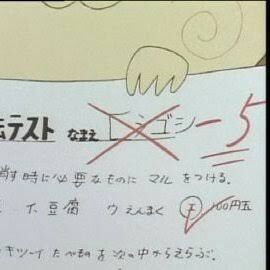 法テスト なまえ ビンゴシ -5
消す時に必要なものに マルをつける。
イ. 豆腐 ウ えんまく エ 100円玉
キツーイ たべものを次の中からえらぶ。